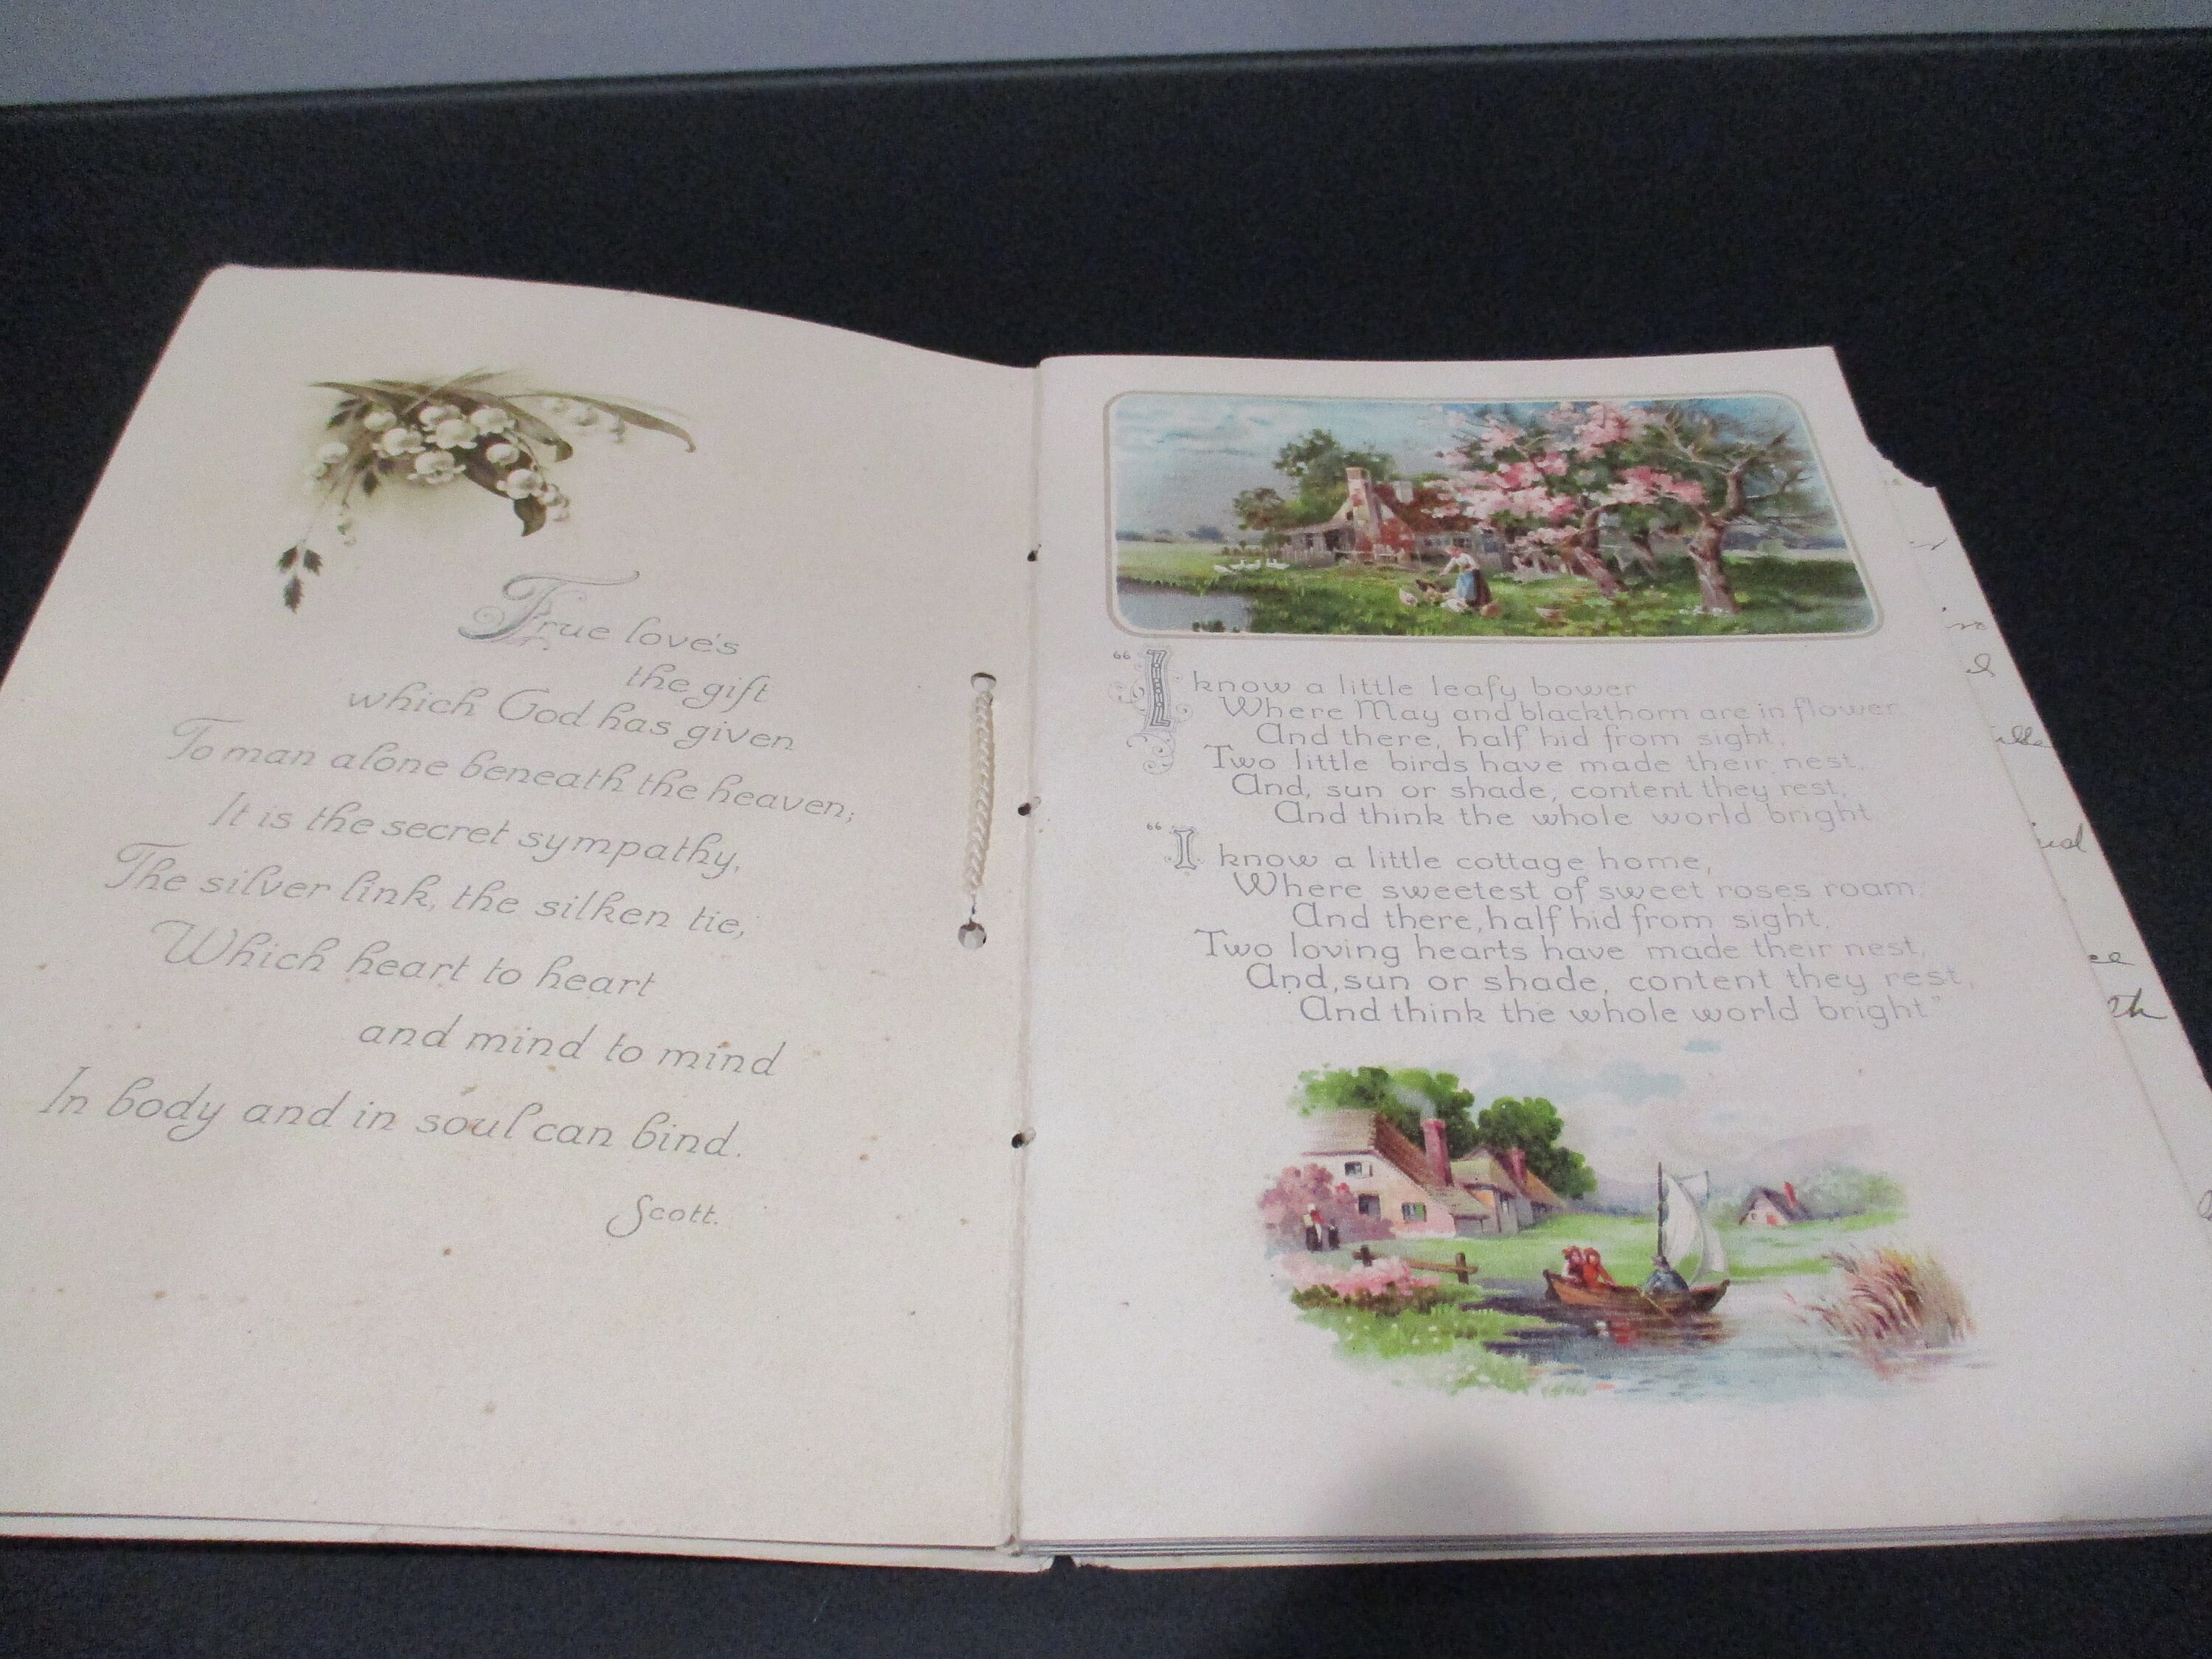 True love's
the gift
which God has given
To man alone beneath the heaven;
It is the secret sympathy,
The silver link, the silken tie,
Which heart to heart
and mind to mind
In body and in soul can bind.
Scott.
"I know a little leafy bower
Where May and blackthorn are in flower
And there, half hid from sight,
Two little birds have made their nest,
And, sun or shade, content they rest,
And think the whole world bright
"I know a little cottage home,
Where sweetest of sweet roses roam
And there, half hid from sight,
Two loving hearts have made their nest,
And, sun or shade, content they rest,
And think the whole world bright."